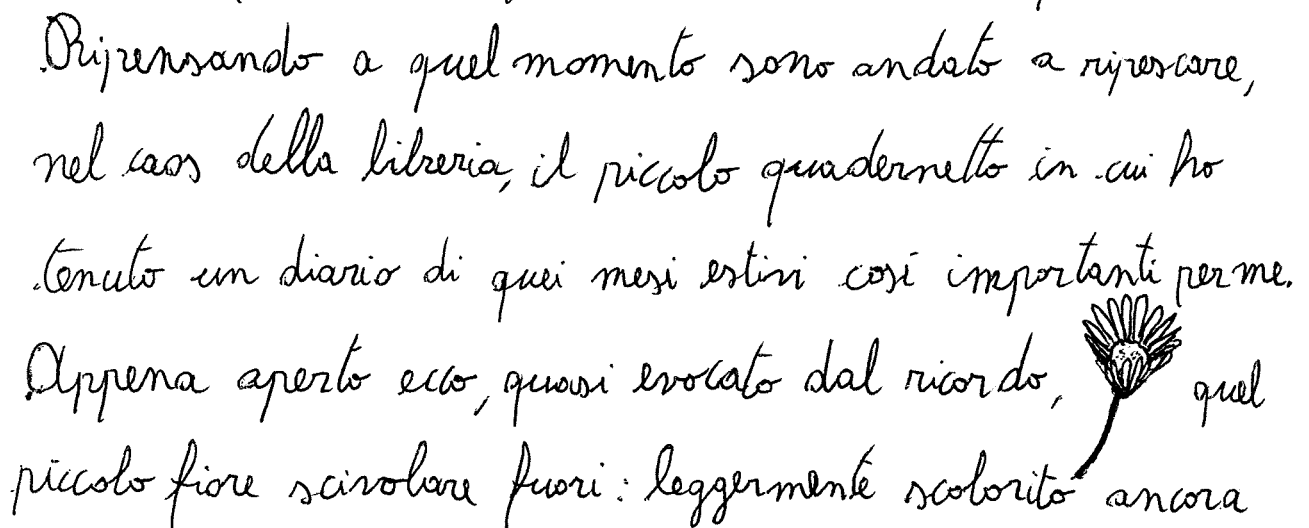 Ripensando a quel momento sono andato a ripescare,
nel caos della libreria, il piccolo quadernetto in cui ho
tenuto un diario di quei mesi estivi così importanti per me.
Appena aperto ecco, quasi evocato dal ricordo, quel
piccolo fiore scivolare fuori: leggermente scolorito ancora